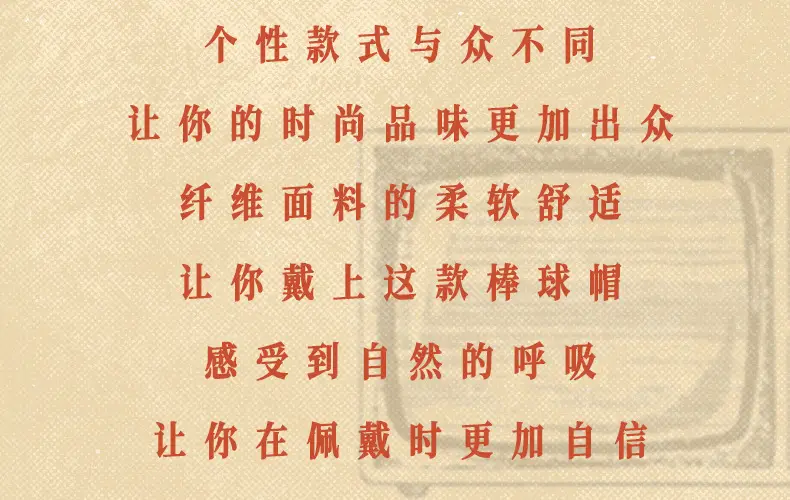 个性款式与众不同
让你的时尚品味更加出众
纤维面料的柔软舒适
让你戴上这款棒球帽
感受到自然的呼吸
让你在佩戴时更加自信